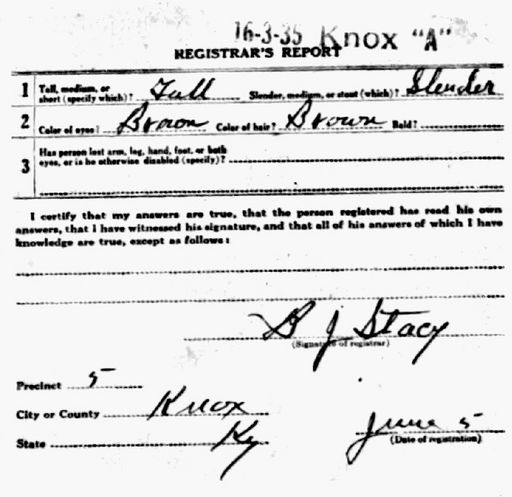 16-3-35 Knox "A"
REGISTRAR'S REPORT
1 Tall, medium, or short (specify which)? Tall Slender, medium, or stout (which)? Slender
2 Color of eyes? Brown Color of hair? Brown Bald?
3 Has person lost arm, leg, hand, foot, or both eyes, or is he otherwise disabled (specify)?
I certify that my answers are true, that the person registered has read his own
answers, that I have witnessed his signature, and that all of his answers of which I have
knowledge are true, except as follows:
B J Stacy
(Signature of registrar)
Precinct 5
City or County Knox
State Ky June 5
(Date of registration)